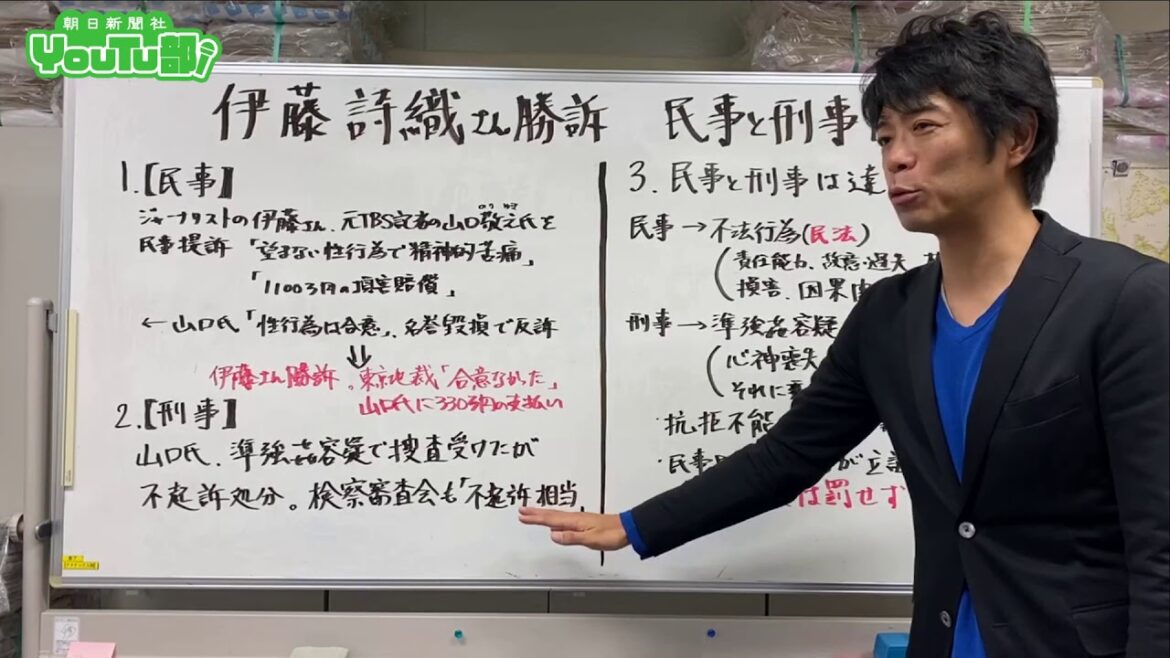 朝日新聞社
YouTu部
伊藤詩織さん勝訴 民事と刑事
1.【民事】
ジャーナリストの伊藤さん、元TBS記者の山口敬之氏を
のりゆき
民事提訴「望まない性行為で精神的苦痛」
「1100万円の損害賠償」
← 山口氏「性行為は合意」、名誉毀損で反訴
⇓
伊藤さん勝訴。東京地裁「合意なかった」
山口氏に330万円の支払い
2.【刑事】
山口氏、準強姦容疑で捜査受けたが
不起訴処分。検察審査会も「不起訴相当」
3. 民事と刑事は違
民事 → 不法行為(民法)
(責任能力、故意・過失
損害、因果
刑事 → 準強姦容疑
(心神喪失
それに
・抗拒不能
・民事 が立証
は罰せず